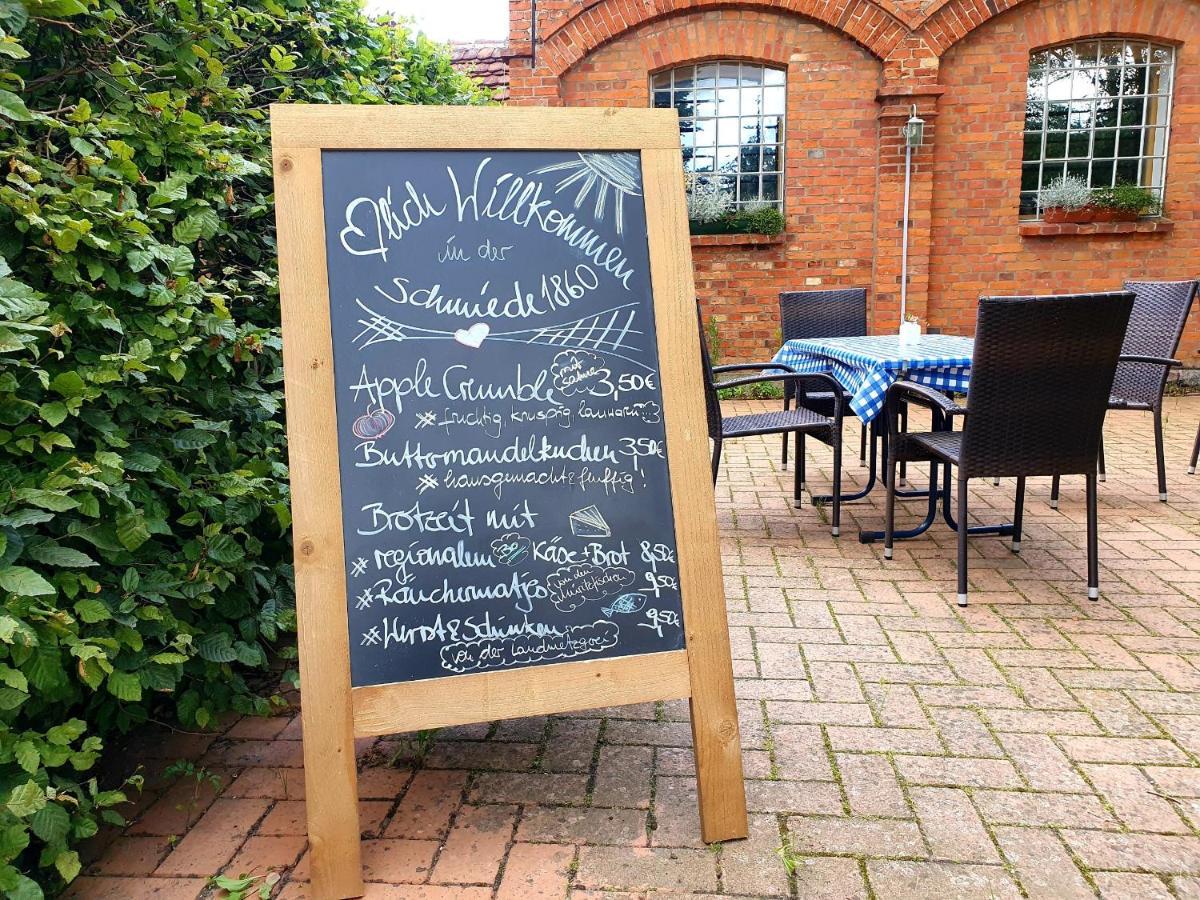 Eflich Willkommen
in der
Schmiede 1860
Apple Crumble mit Sahne 3,50€
# fruchtig, knusprig, lauwarm
Buttermandelkuchen 3,50€
# hausgemacht & fluffig!
Brotzeit mit
# regionalem Bio Käse + Brot 8,50
# Räuchermatjes von den Müritzfischern 9,50€
# Wurst & Schinken 9,50€
von der Landmetzgerei